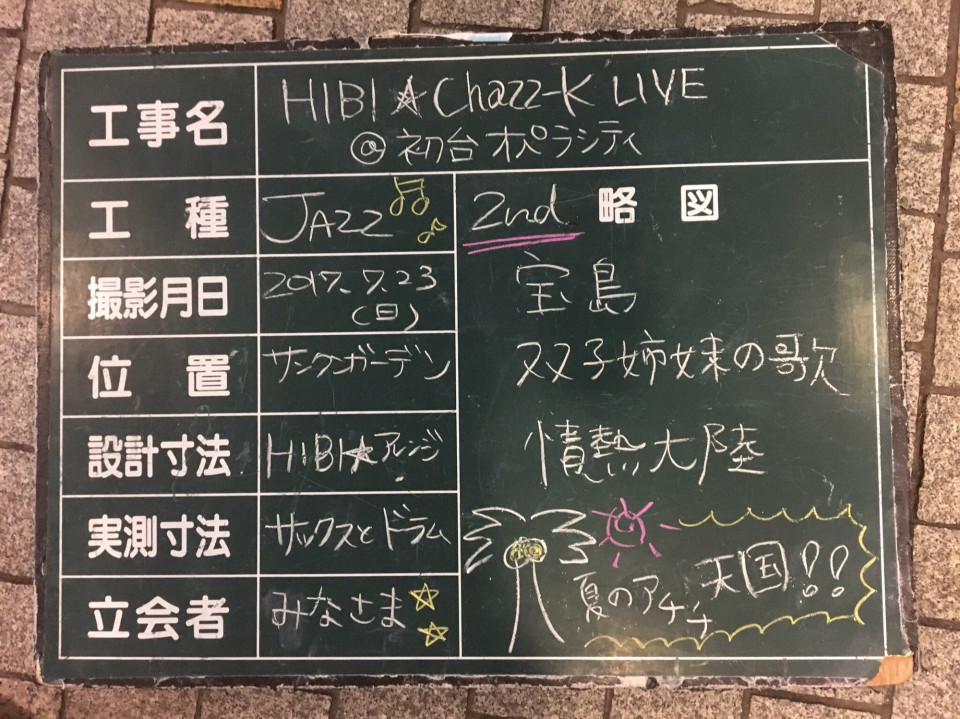 工事名 HIBI☆Chazz-K LIVE
@初台オペラシティ
工種 JAZZ
撮影月日 2017.7.23
(日)
位置 サンクンガーデン
設計寸法 HIBI★アレンジ
実測寸法 サックスとドラム
立会者 みなさま☆☆
2nd 略図
宝島
双子姉妹の歌
情熱大陸
夏のアチチ天国!!